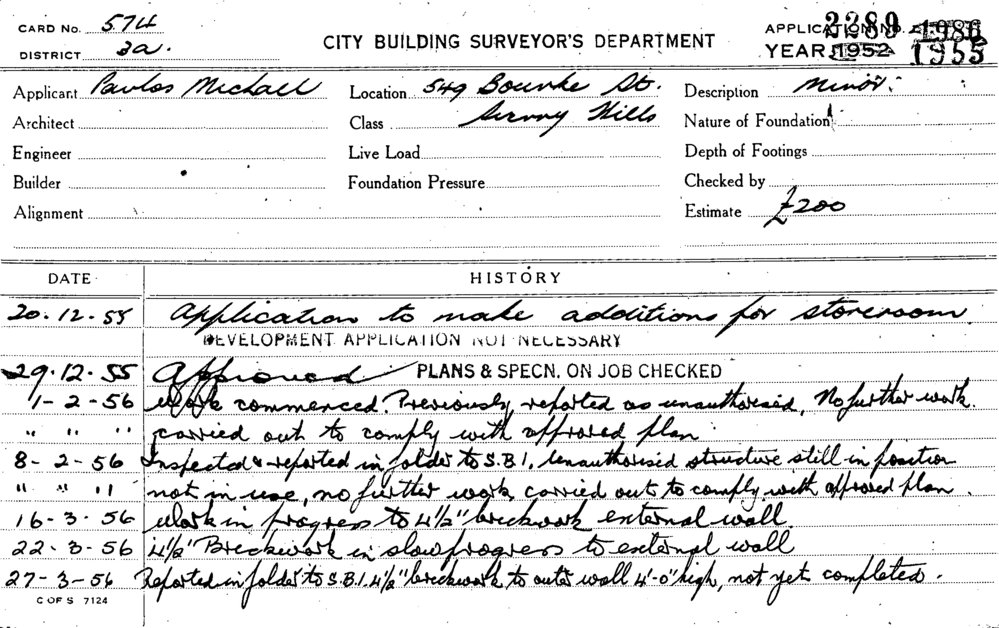 CARD No. 574
DISTRICT 3a.
CITY BUILDING SURVEYOR'S DEPARTMENT
APPLICATION No. 2289
YEAR 1952 1955
Applicant Pavlos Michall
Location 549 Bourke St.
Surry Hills
Description Minor.
Architect
Class
Nature of Foundation
Engineer
Live Load
Depth of Footings
Builder
Foundation Pressure
Checked by
Alignment
Estimate £200
DATE
HISTORY
20.12.55 Application to make additions for storeroom.
DEVELOPMENT APPLICATION NOT NECESSARY
29.12.55 Approved PLANS & SPECN. ON JOB CHECKED
1-2-56 Work commenced. Previously reported as unauthorised. No further work.
" " " carried out to comply with approved plan
8-2-56 Inspected & reported in folder to S.B.I. Unauthorised structure still in position
" " " not in use, no further work, carried out to comply with approved plan.
16-3-56 Work in progress to 4½" brickwork external wall.
22-3-56 4½" Brickwork in slow progress to external wall
27-3-56 Reported in folder to S.B.I. 4½" brickwork to outer wall 4'-0" high, not yet completed.
C OF S 7124